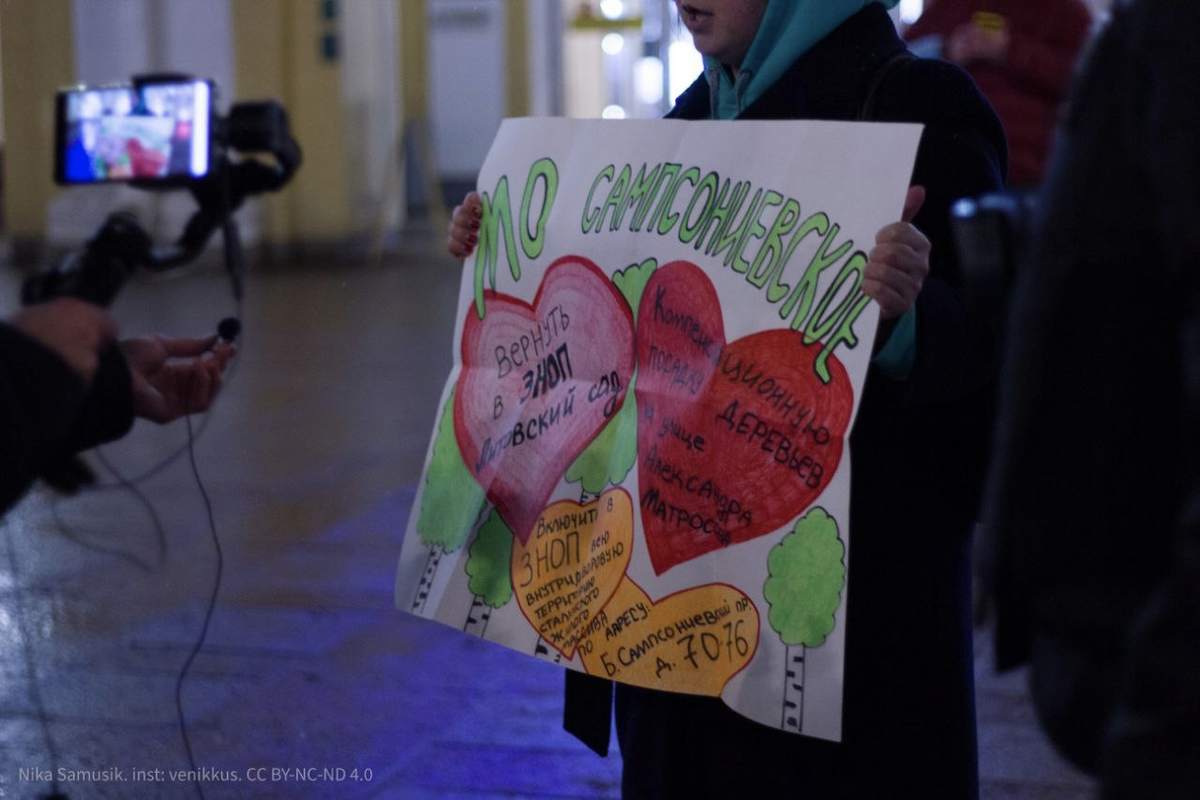 МО САМПСОНИЕВСКОЕ
ВЕРНУТЬ
В ЗНОП
Литовский сад
Компенсационную
посадку ДЕРЕВЬЕВ
и улице
Александра
Матросова
Включить в
ЗНОП всю
внутридворовую
территорию
сталинского
жилого
массива
по АДРЕСУ:
Б. Сампсониевский пр.
д. 70-76
Nika Samusik. inst: venikkus. CC BY-NC-ND 4.0